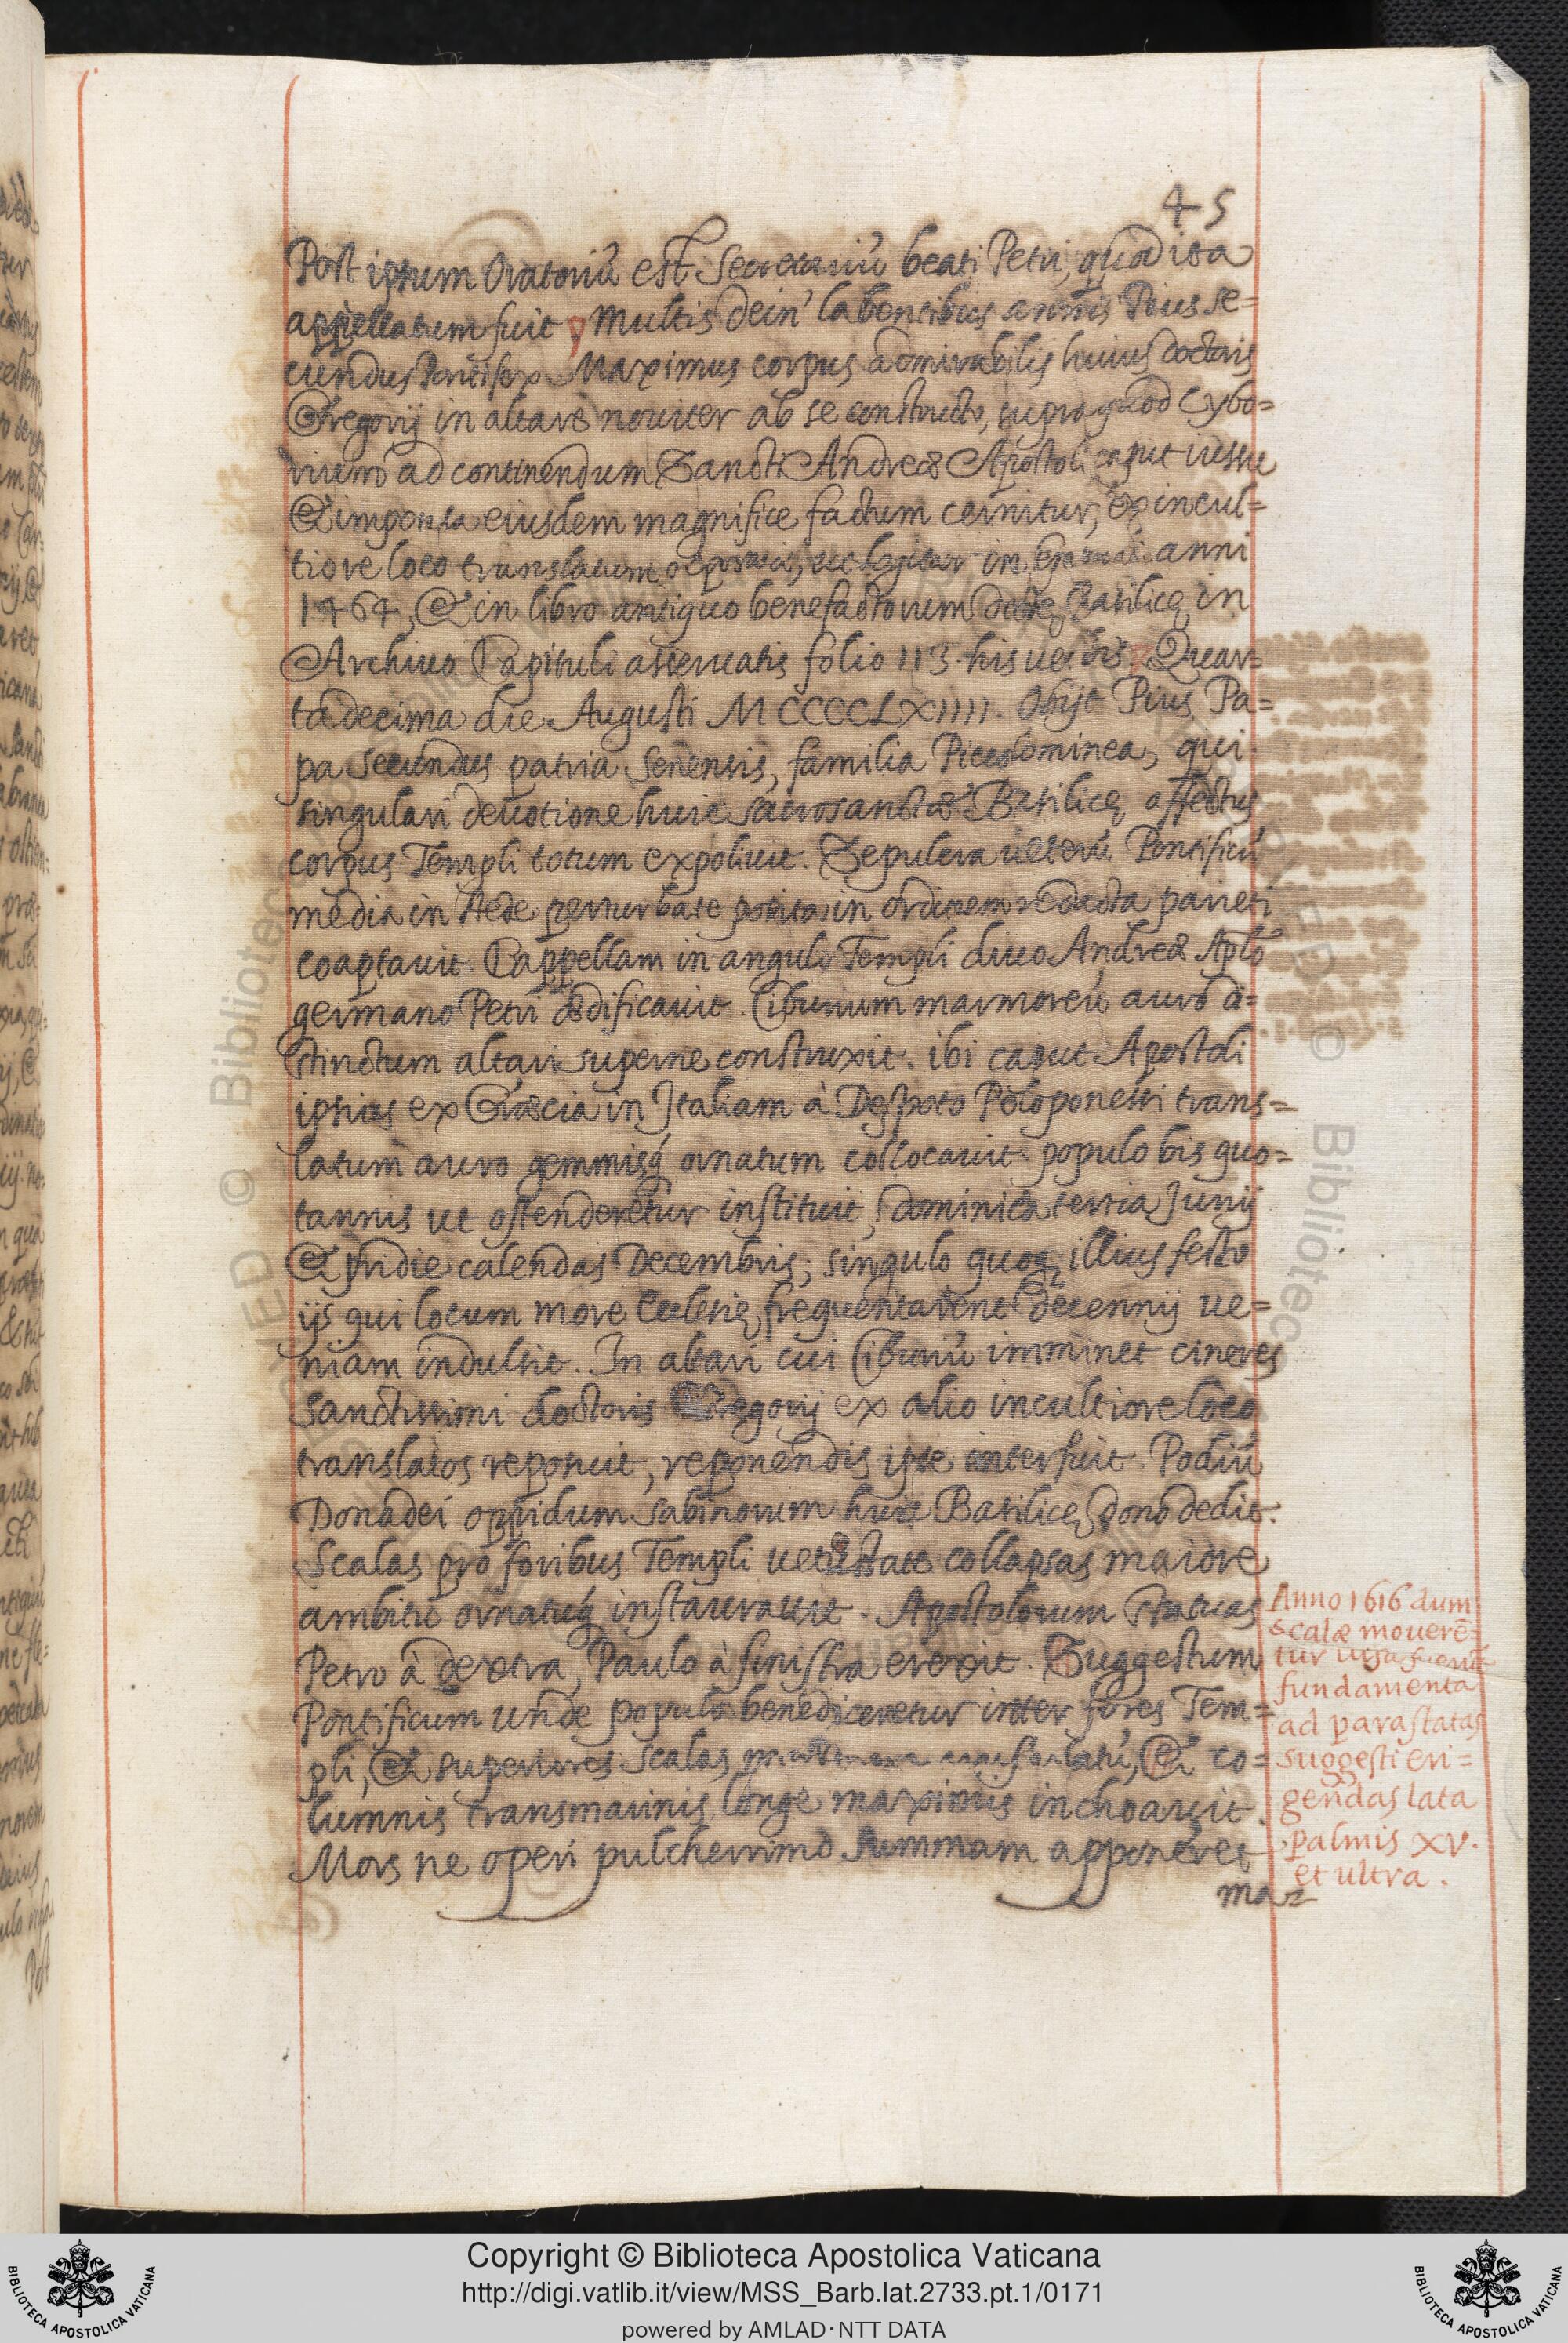 45
Post ipsum Oratoriū est Secretariū beati Petri, quod ita
appellatum fuit. Multis dein' labentibus annis Pius se=
cundus Pontifex Maximus corpus admirabilis huius doctoris
Gregorij in altare noviter ab se constructo, supra quod Cybo=
rium ad continendum Sancti Andreæ Apostoli caput iussu
& impensa eiusdem magnifice factum cernitur, ex incul=
tiore loco translatum ut legitur in anni
1464, & in libro antiquo benefactorum dictę Basilicę in
Archivo Capituli asservatis folio 113. his verbis. Quar=
tadecima die Augusti MCCCCLXIIII. Obijt Pius Pa=
pa Secundus patria Senensis, familia Piccolominea, qui
singulari devotione huic sacrosanctæ Basilicę affectus
corpus Templi totum expolivit. Sepulcra veterū Pontificū
media in Aede perturbate posita in ordinem redacta parieti
coaptavit. Cappellam in angulo Templi divo Andreæ Aplo
germano Petri ædificavit. Ciburium marmoreū auro di=
stinctum altari superne construxit. ibi caput Apostoli
ipsius ex Græcia in Italiam à Despoto Peloponessi trans=
latum auro gemmisq́ ornatum collocavit populo bis quo=
tannis ut ostenderetur instituit, dominica tertia Junij
& pridie calendas Decembris; singulo quoq illius festo
ijs qui locum more Ecclesię frequentarent decennij ve=
niam indulsit. In altari cui Ciburiū imminet cineres
Sanctissimi doctoris Gregorij ex alio incultiore loco
translatos reposuit, reponendis ipse interfuit. Podiū
Donadei oppidum Sabinorum huic Basilicę dono dedit.
Scalas pro foribus Templi vetustate collapsas maiore
ambitu ornatuq́ instauravit. Apostolorum statuas
Petro à dextra, Paulo à sinistra erexit. Suggestum
Pontificum unde populo benediceretur inter fores Tem=
pli, & superiores scalas & co=
lumnis transmarinis longe maximis inchoavit.
Mors ne operi pulcherrimo summam apponeret
ma=
Anno 1616 dum
scalæ moverē=
tur visa fuerūt
fundamenta
ad parastatas
suggesti eri=
gendas lata
palmis XV.
et ultra.
Copyright © Biblioteca Apostolica Vaticana
http://digi.vatlib.it/view/MSS_Barb.lat.2733.pt.1/0171
powered by AMLAD·NTT DATA
BIBLIOTECA APOSTOLICA VATICANA
BIBLIOTECA APOSTOLICA VATICANA